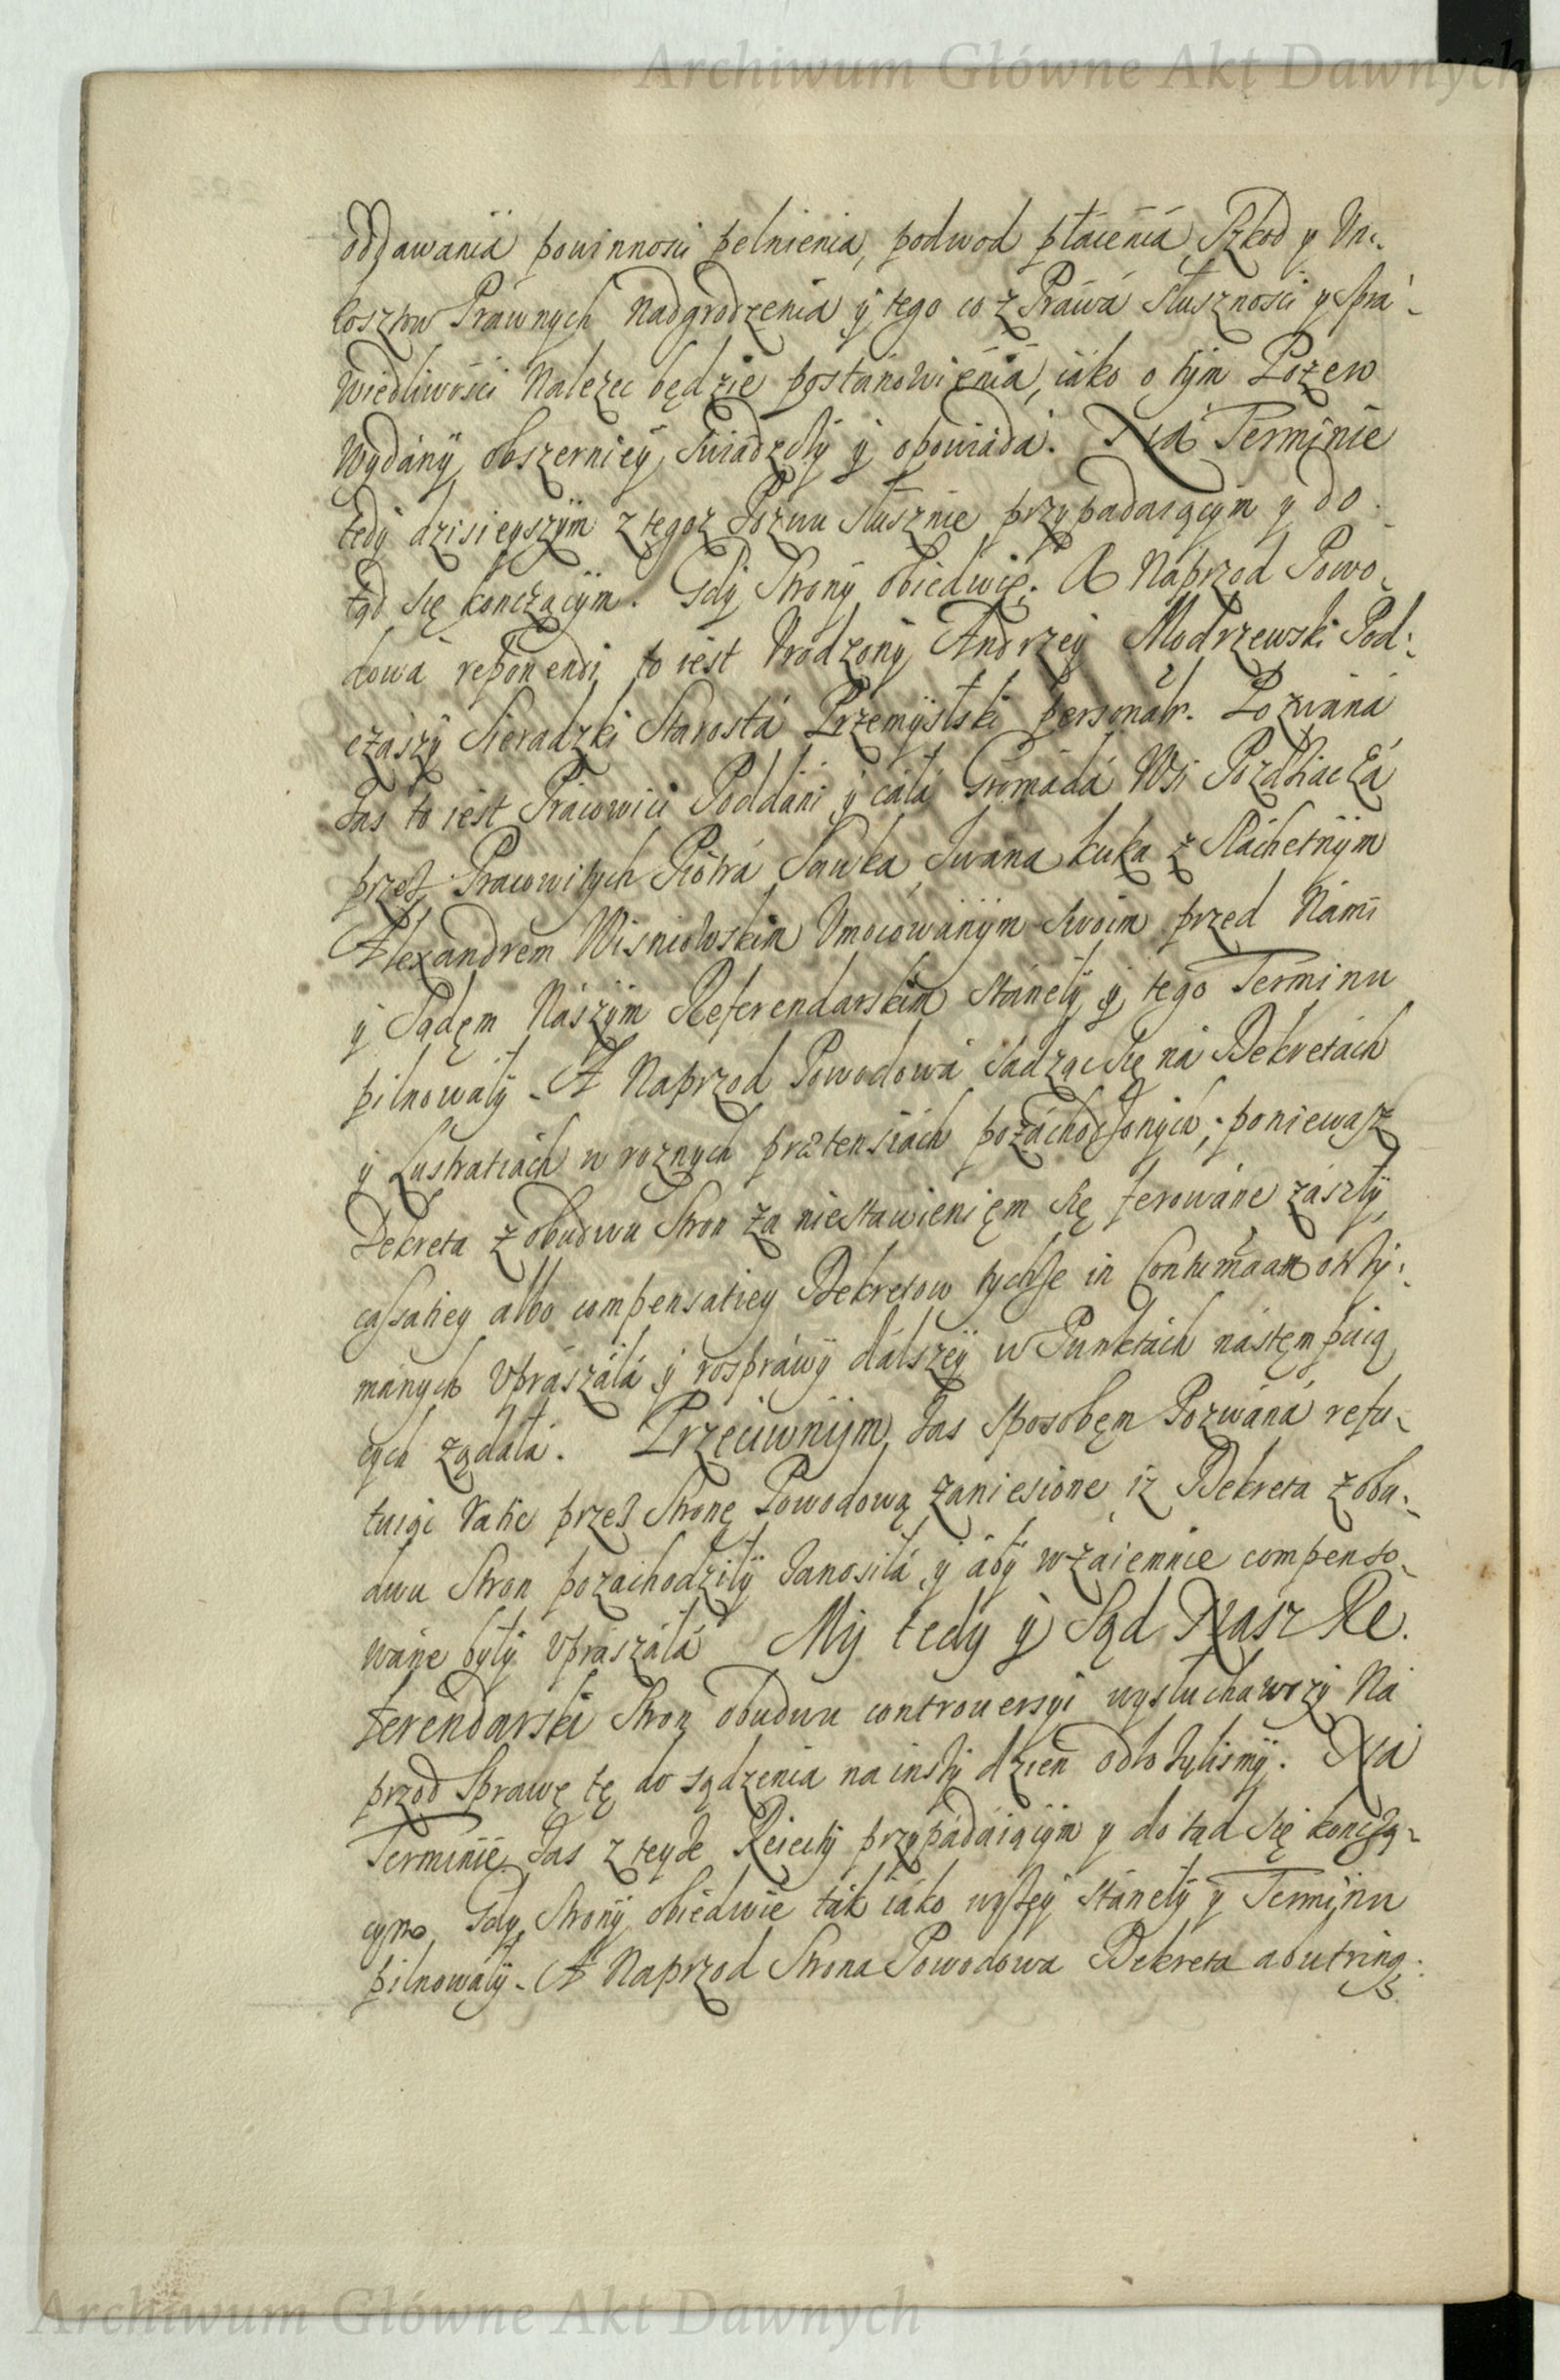 Archiwum Główne Akt Dawnych
oddawania powinnosci pełnienia, podwod płácenia, Szkod y Un-
kosztow Práwnych Nadgrodzenia y tego co z Práwá Słusznosci y Sprá-
wiedliwosci Nalezec będzie postánowięnia, iáko o tym Pozew
Wydány obszerniey Swiádczy y opowiáda. Ná Terminie
tedy dzisieyszym z tegoz Pozwu słusznie przypadaiącym y do
tąd się kończącym. Gdy Strony obiedwie. A Náprzod Powo-
dowá reponendi to iest Urodzony Andrzey Modrzewski Pod-
czászy Sieradzki Stárostá Przemyslski personalr. Pozwáná
zas to iest Prácowici Poddáni y cáłá Gromádá Wsi Pozdziaczá
przez Pracowitych Piotrá Sawka, Iwaná Łuka z Sláchetnym
Alexandrem Wisniowskim Umocowánym Swoim przed Námi
y Sądęm Nászym Referendarskim stánęły y tego Terminu
pilnowały. A Naprzod Powodowá sadząc się ná Dekretách
y Lustratiách w roznych prætensiách pozáchodzonych; poniewasz
Dekreta z obudwu Stron za niestawienięm się ferowáne zászły,
cassatiey albo compensatiey Dekretow tychze in Contumaciam otrzy-
mánych upraszáłá y rospráwy dálszey w Punktách nástęmpuią
cych ządáłá. Przeciwnym zas sposobęm Pozwáná refu-
tuiąc ratie przez Stronę Powodową zaniesione iz Dekreta z obu-
dwu Stron pozachodziły zanosiłá y áby wzaiemnie compenso-
wáne były upraszáłá My tedy y Sąd Nasz Re-
ferendarski Stron obudwu controuersyi wysłuchawszy Ná
przod Sprawę tę do sądzenia na inszy dzien odłozylismy. Ná
Terminie zas z teyze Reiecty przypádáiącym y do tąd się konczą-
cym, Gdy Strony obiedwie ták iáko wyżey stánęły y Terminu
pilnowały. A Naprzod Strona Powodowa Dekreta aoutrinq;
Archiwum Główne Akt Dawnych